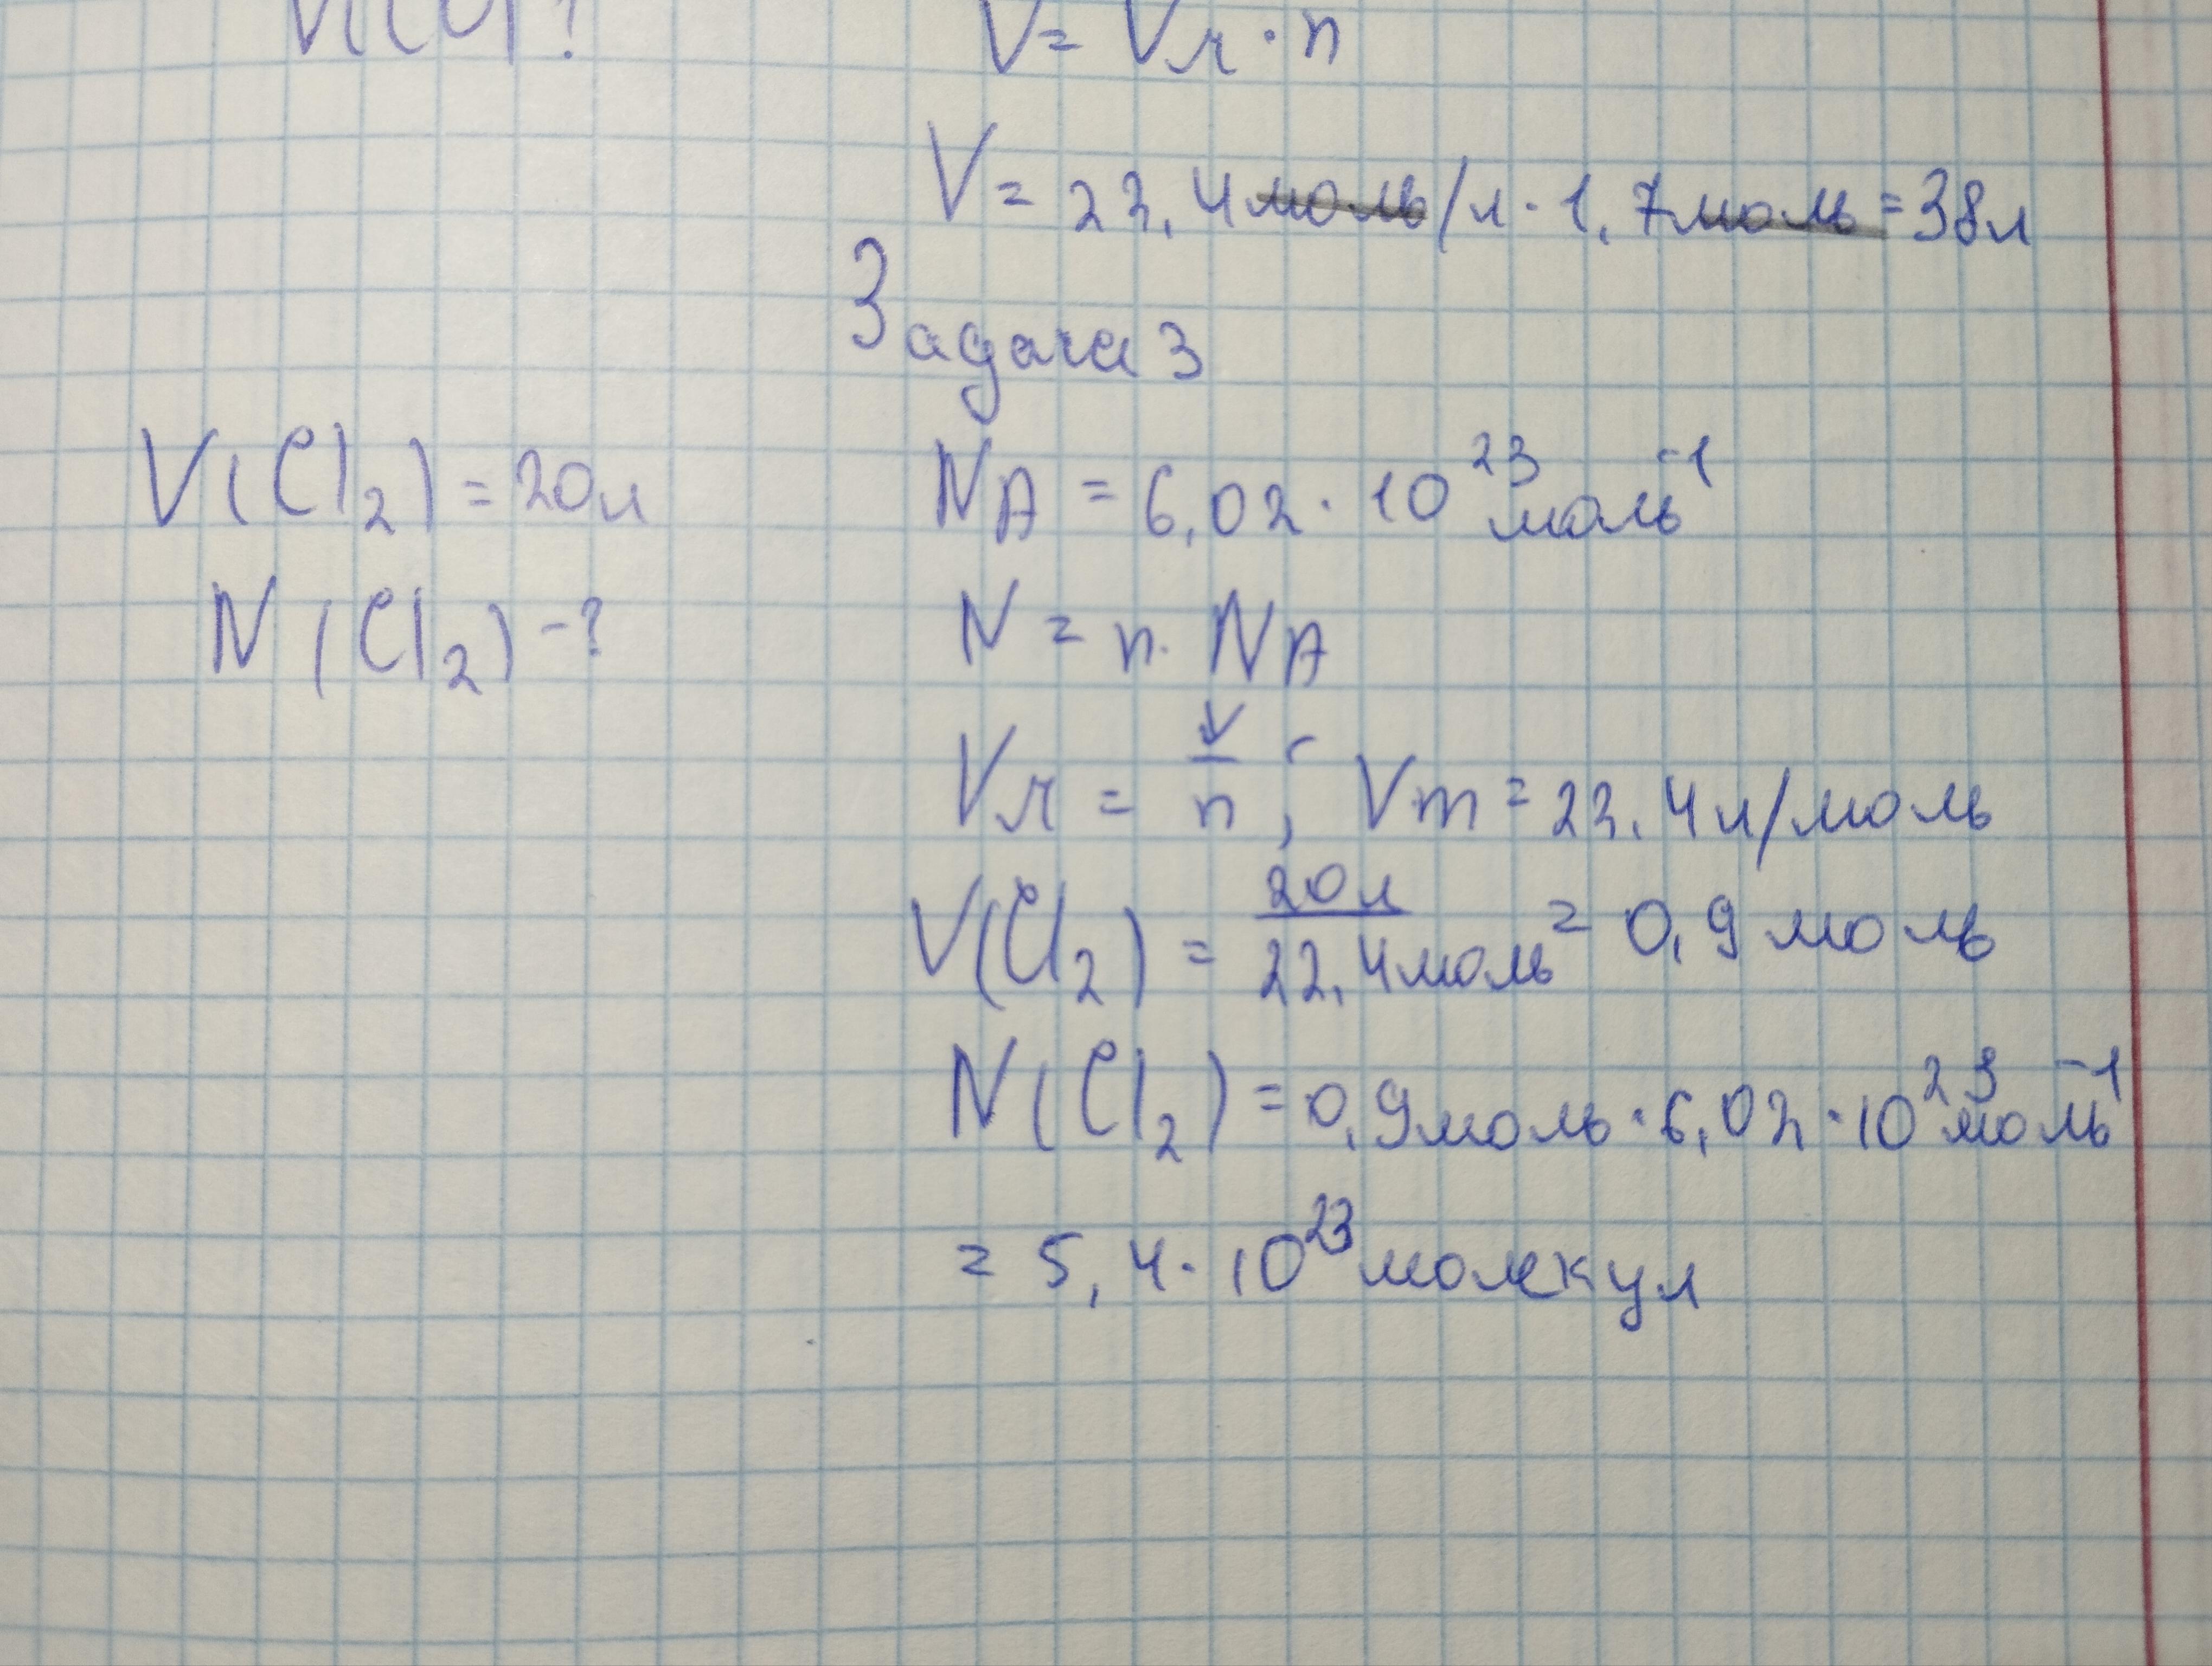 V = Vм · n
V = 22,4 моль/л · 1,7 моль = 38л
Задача 3
V(Cl₂) = 20л
N(Cl₂) - ?
NA = 6,02 · 10²³ моль⁻¹
N = n · NA
Vм = V/n ; Vm = 22,4 л/моль
V(Cl₂) = 20л/22,4моль = 0,9 моль
N(Cl₂) = 0,9моль · 6,02 · 10²³ моль⁻¹
= 5,4 · 10²³ молекул